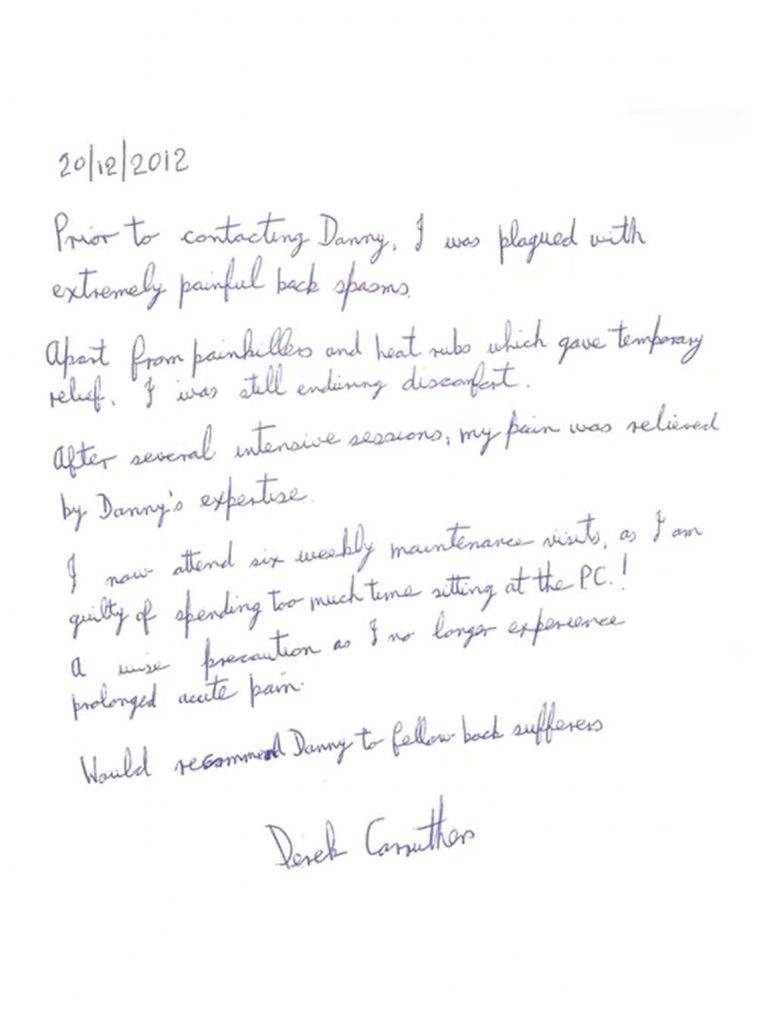 20/12/2012
Prior to contacting Danny, I was plagued with
extremely painful back spasms.
Apart from painkillers and heat rubs which gave temporary
relief, I was still enduring discomfort.
After several intensive sessions, my pain was relieved
by Danny's expertise.
I now attend six weekly maintenance visits, as I am
guilty of spending too much time sitting at the P.C.!
A wise precaution as I no longer experience
prolonged acute pain.
Would recommend Danny to fellow back sufferers
Derek Carruthers